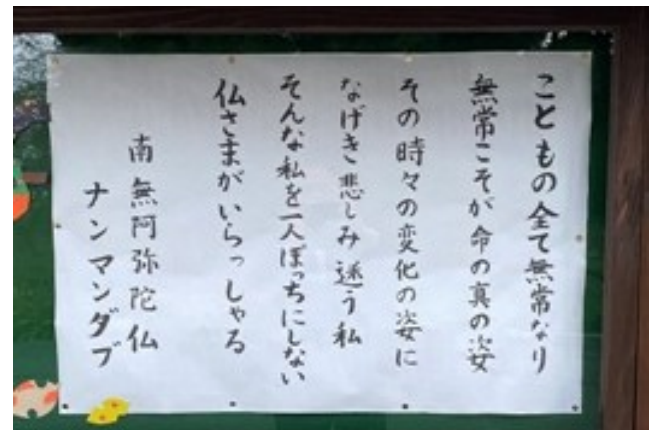 こともの全て無常なり
無常こそが命の真の姿
その時々の変化の姿に
なげき悲しみ迷う私
そんな私を一人ぼっちにしない
仏さまがいらっしゃる
南無阿弥陀仏
ナンマンダブ